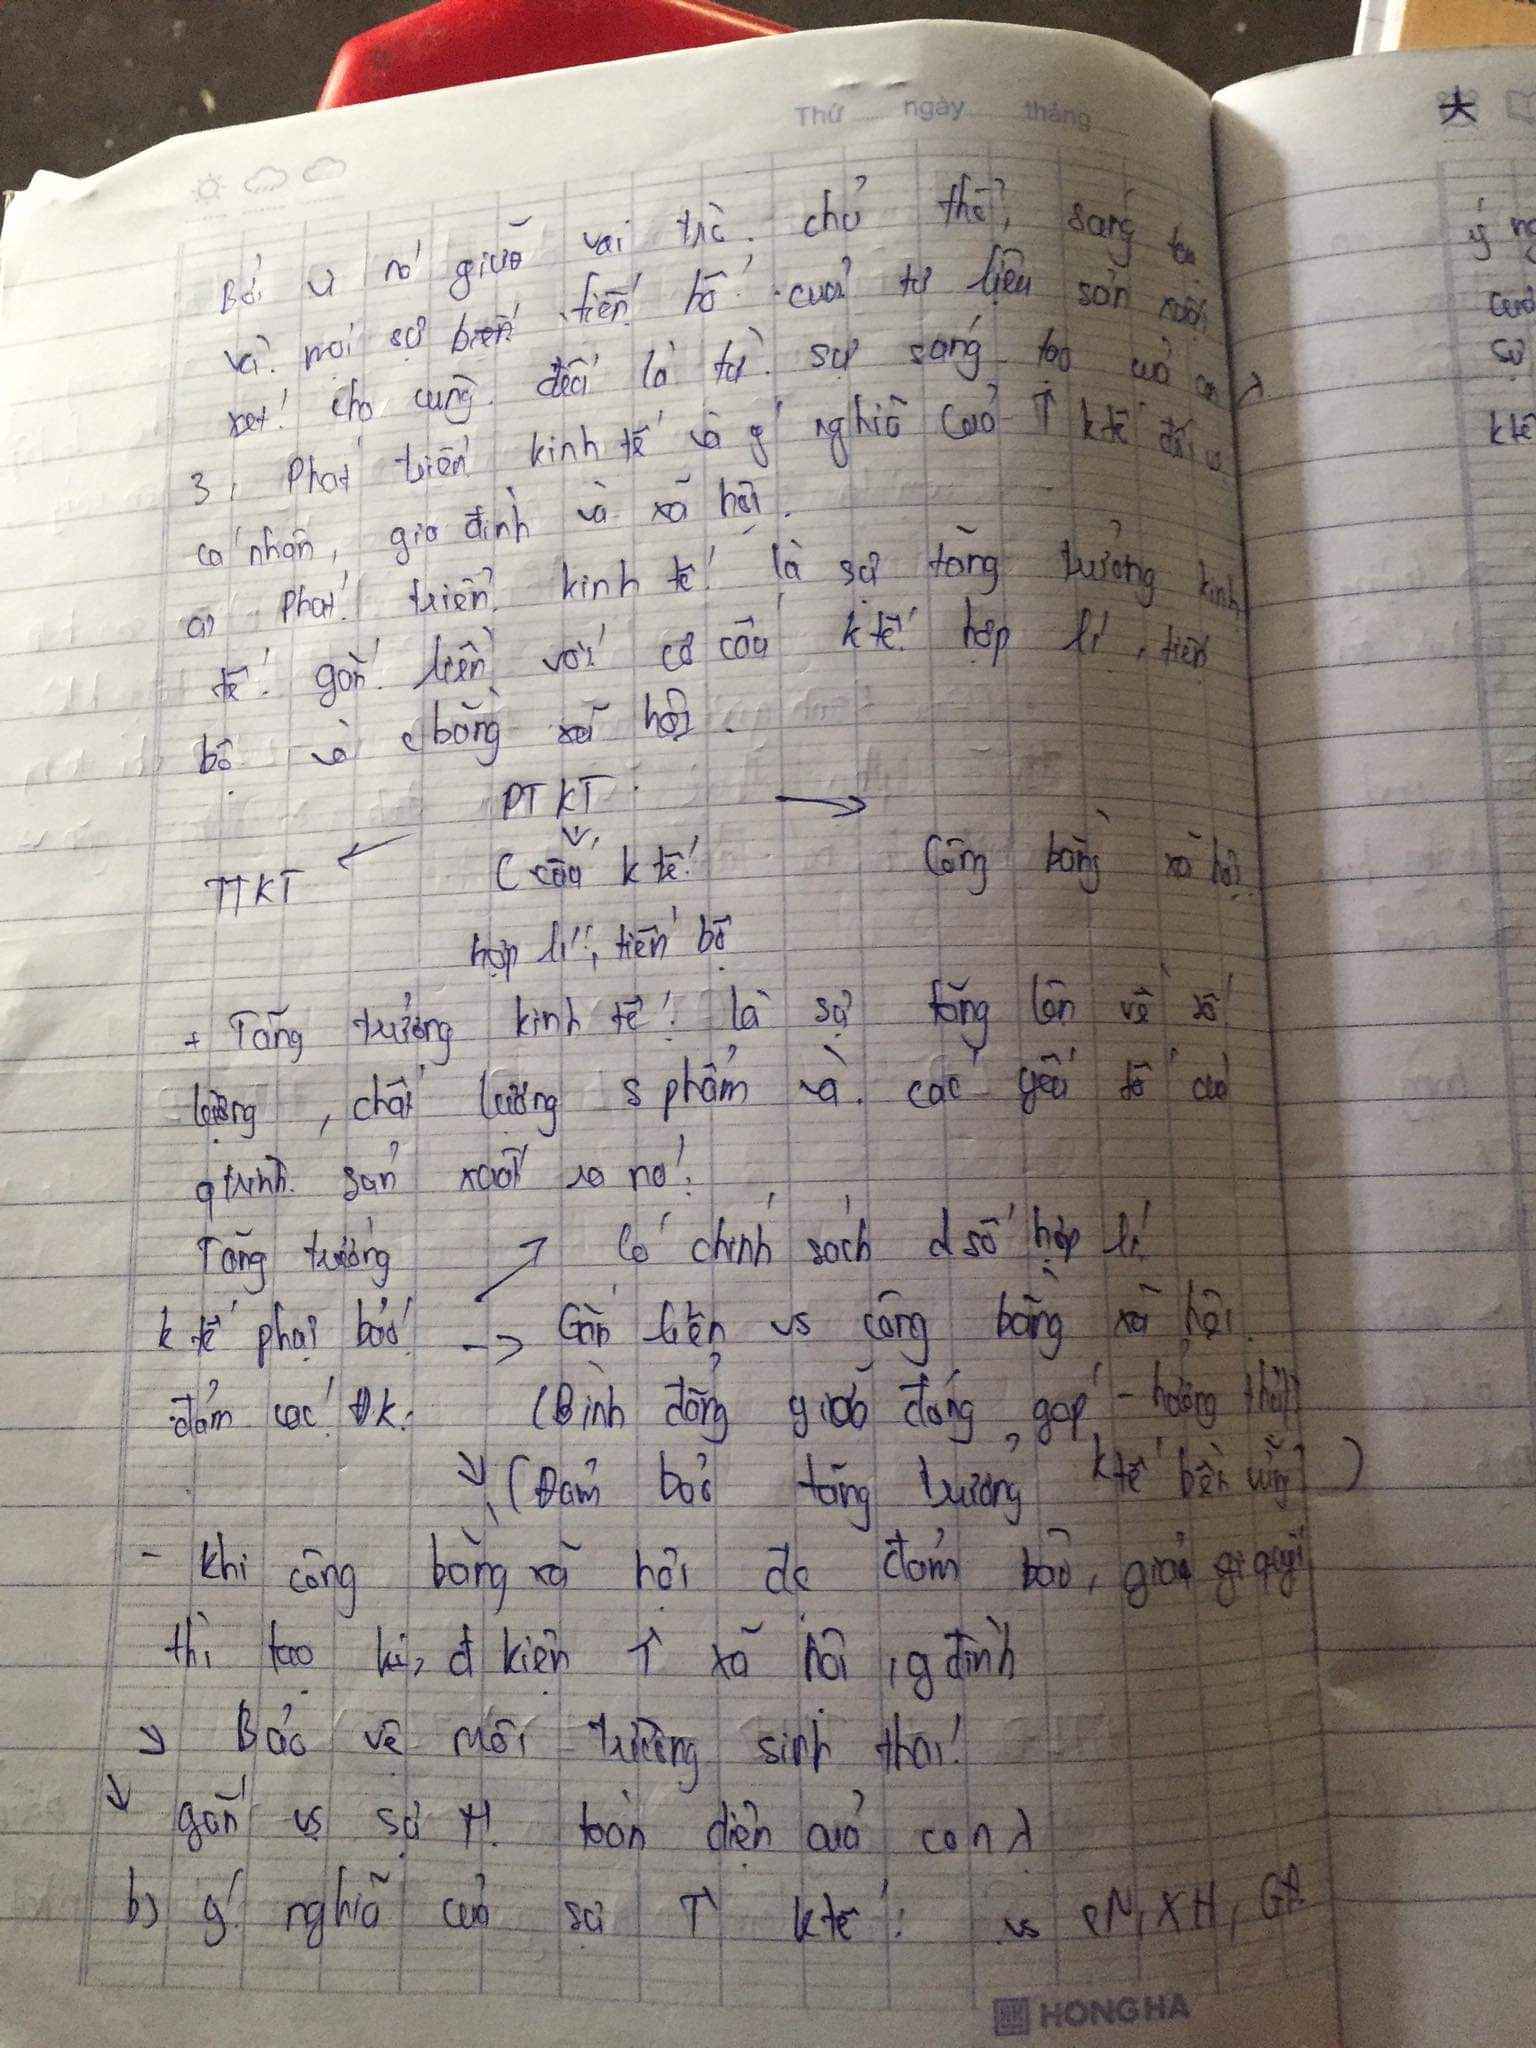 Thứ ngày tháng
Bởi vì nó giữa vai trò chủ thể, sáng tạo
và mọi sự biến tiến bộ của tư liệu sản xuất
xét cho cùng đều là từ sự sáng tạo của con λ
3, Phát triển kinh tế và ý nghĩa của ↑ ktế đối vs
cá nhân, gia đình và xã hội.
a) Phát triển kinh tế là sự tăng trưởng kinh
tế gắn liền với cơ cấu k tế hợp lí, tiến
bộ và c bằng xã hội.
PTKT
TTKT C cấu k tế Công bằng xã hội
hợp lí, tiến bộ
+ Tăng trưởng kinh tế: là sự tăng lên về số
lượng, chất lượng s phẩm và các yếu tố của
qtrình sản xuất ra nó.
Tăng trưởng → Có chính sách d số hợp lí
k tế phải bảo → Gắn liền vs công bằng xã hội.
đảm các ĐK: (Bình đẳng giữa đóng góp - hưởng thụ)
↓ (Đảm bảo tăng trưởng ktế bền vững)
- khi công bằng xã hội đc đảm bảo, giải quyết
thì tạo đ kiện ↑ xã hội, g đình
→ Bảo vệ môi trường sinh thái
↓ gắn vs sự toàn diện của con λ
b) ý nghĩa của sự ↑ ktế: vs CN, XH, GĐ
HONG HA
ý ng
sự
ktế